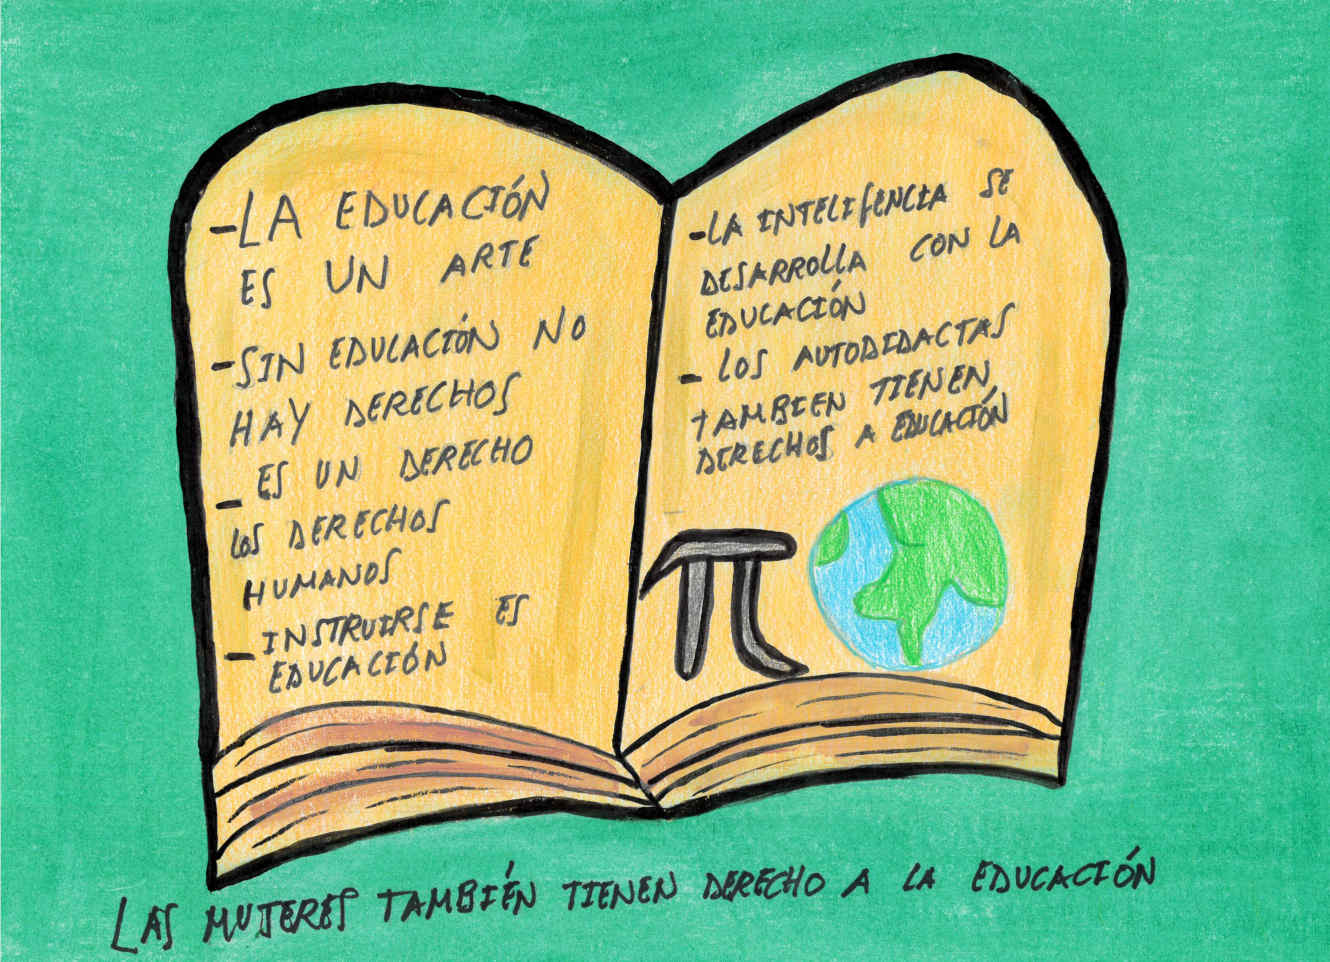 -LA EDUCACIÓN
ES UN ARTE
-SIN EDUCACIÓN NO
HAY DERECHOS
- ES UN DERECHO
LOS DERECHOS
HUMANOS
- INSTRUIRSE ES
EDUCACIÓN
-LA INTELIGENCIA SE
DESARROLLA CON LA
EDUCACIÓN
- LOS AUTODIDACTAS
TAMBIEN TIENEN
DERECHOS A EDUCACIÓN
π
LAS MUJERES TAMBIÉN TIENEN DERECHO A LA EDUCACIÓN